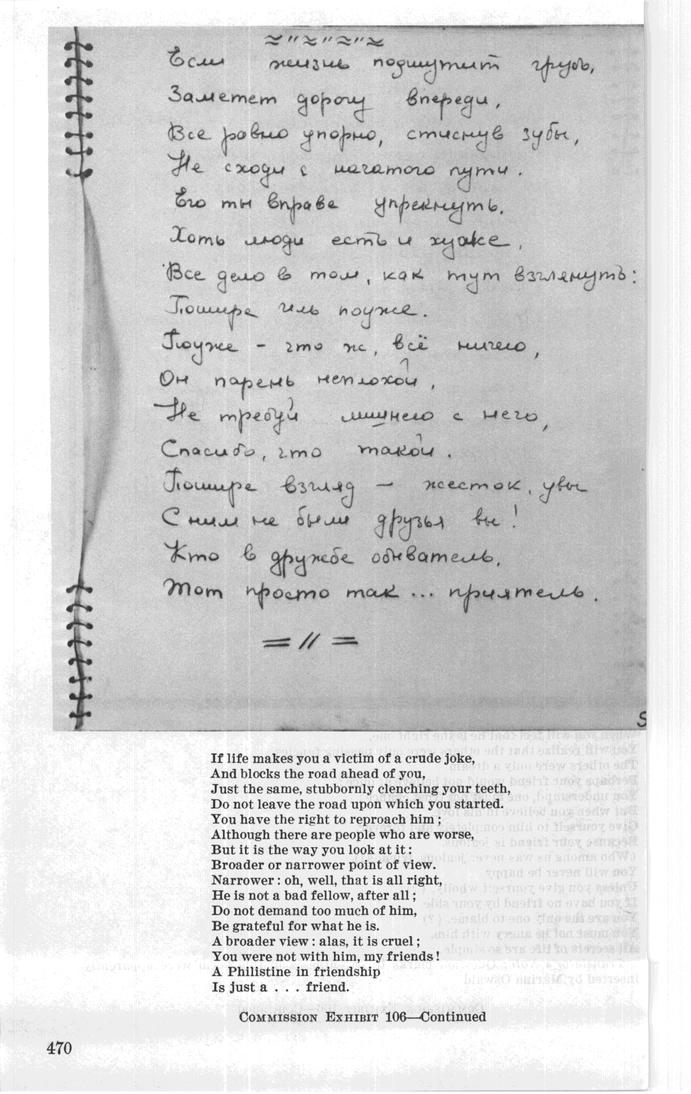 ≈ " ≈ " ≈ " ≈
Если жизнь подшутит грубо,
Заметет дорогу впереди,
Все равно упорно, стиснув зубы,
Не сходи с начатого пути.
Его ты вправе упрекнуть,
Хоть люди есть и хуже,
Все дело в том, как тут взглянуть:
Пошире иль поуже.
Поуже – что ж, всё ничего,
Он парень неплохой,
Не требуй лишнего с него,
Спасибо, что такой.
Пошире взгляд – жесток, увы
С ним не были друзья вы!
Кто в дружбе обыватель,
Тот просто так ... приятель.
= // =
If life makes you a victim of a crude joke,
And blocks the road ahead of you,
Just the same, stubbornly clenching your teeth,
Do not leave the road upon which you started.
You have the right to reproach him;
Although there are people who are worse,
But it is the way you look at it:
Broader or narrower point of view.
Narrower: oh, well, that is all right,
He is not a bad fellow, after all;
Do not demand too much of him,
Be grateful for what he is.
A broader view: alas, it is cruel;
You were not with him, my friends!
A Philistine in friendship
Is just a . . . friend.
COMMISSION EXHIBIT 106—Continued
470